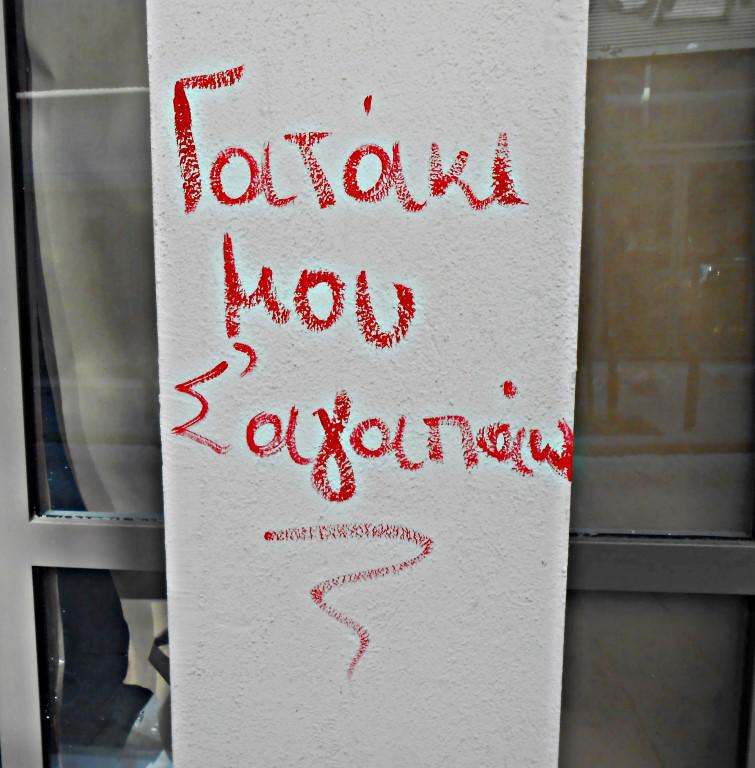 Γατάκι
μου
Σ'αγαπάω